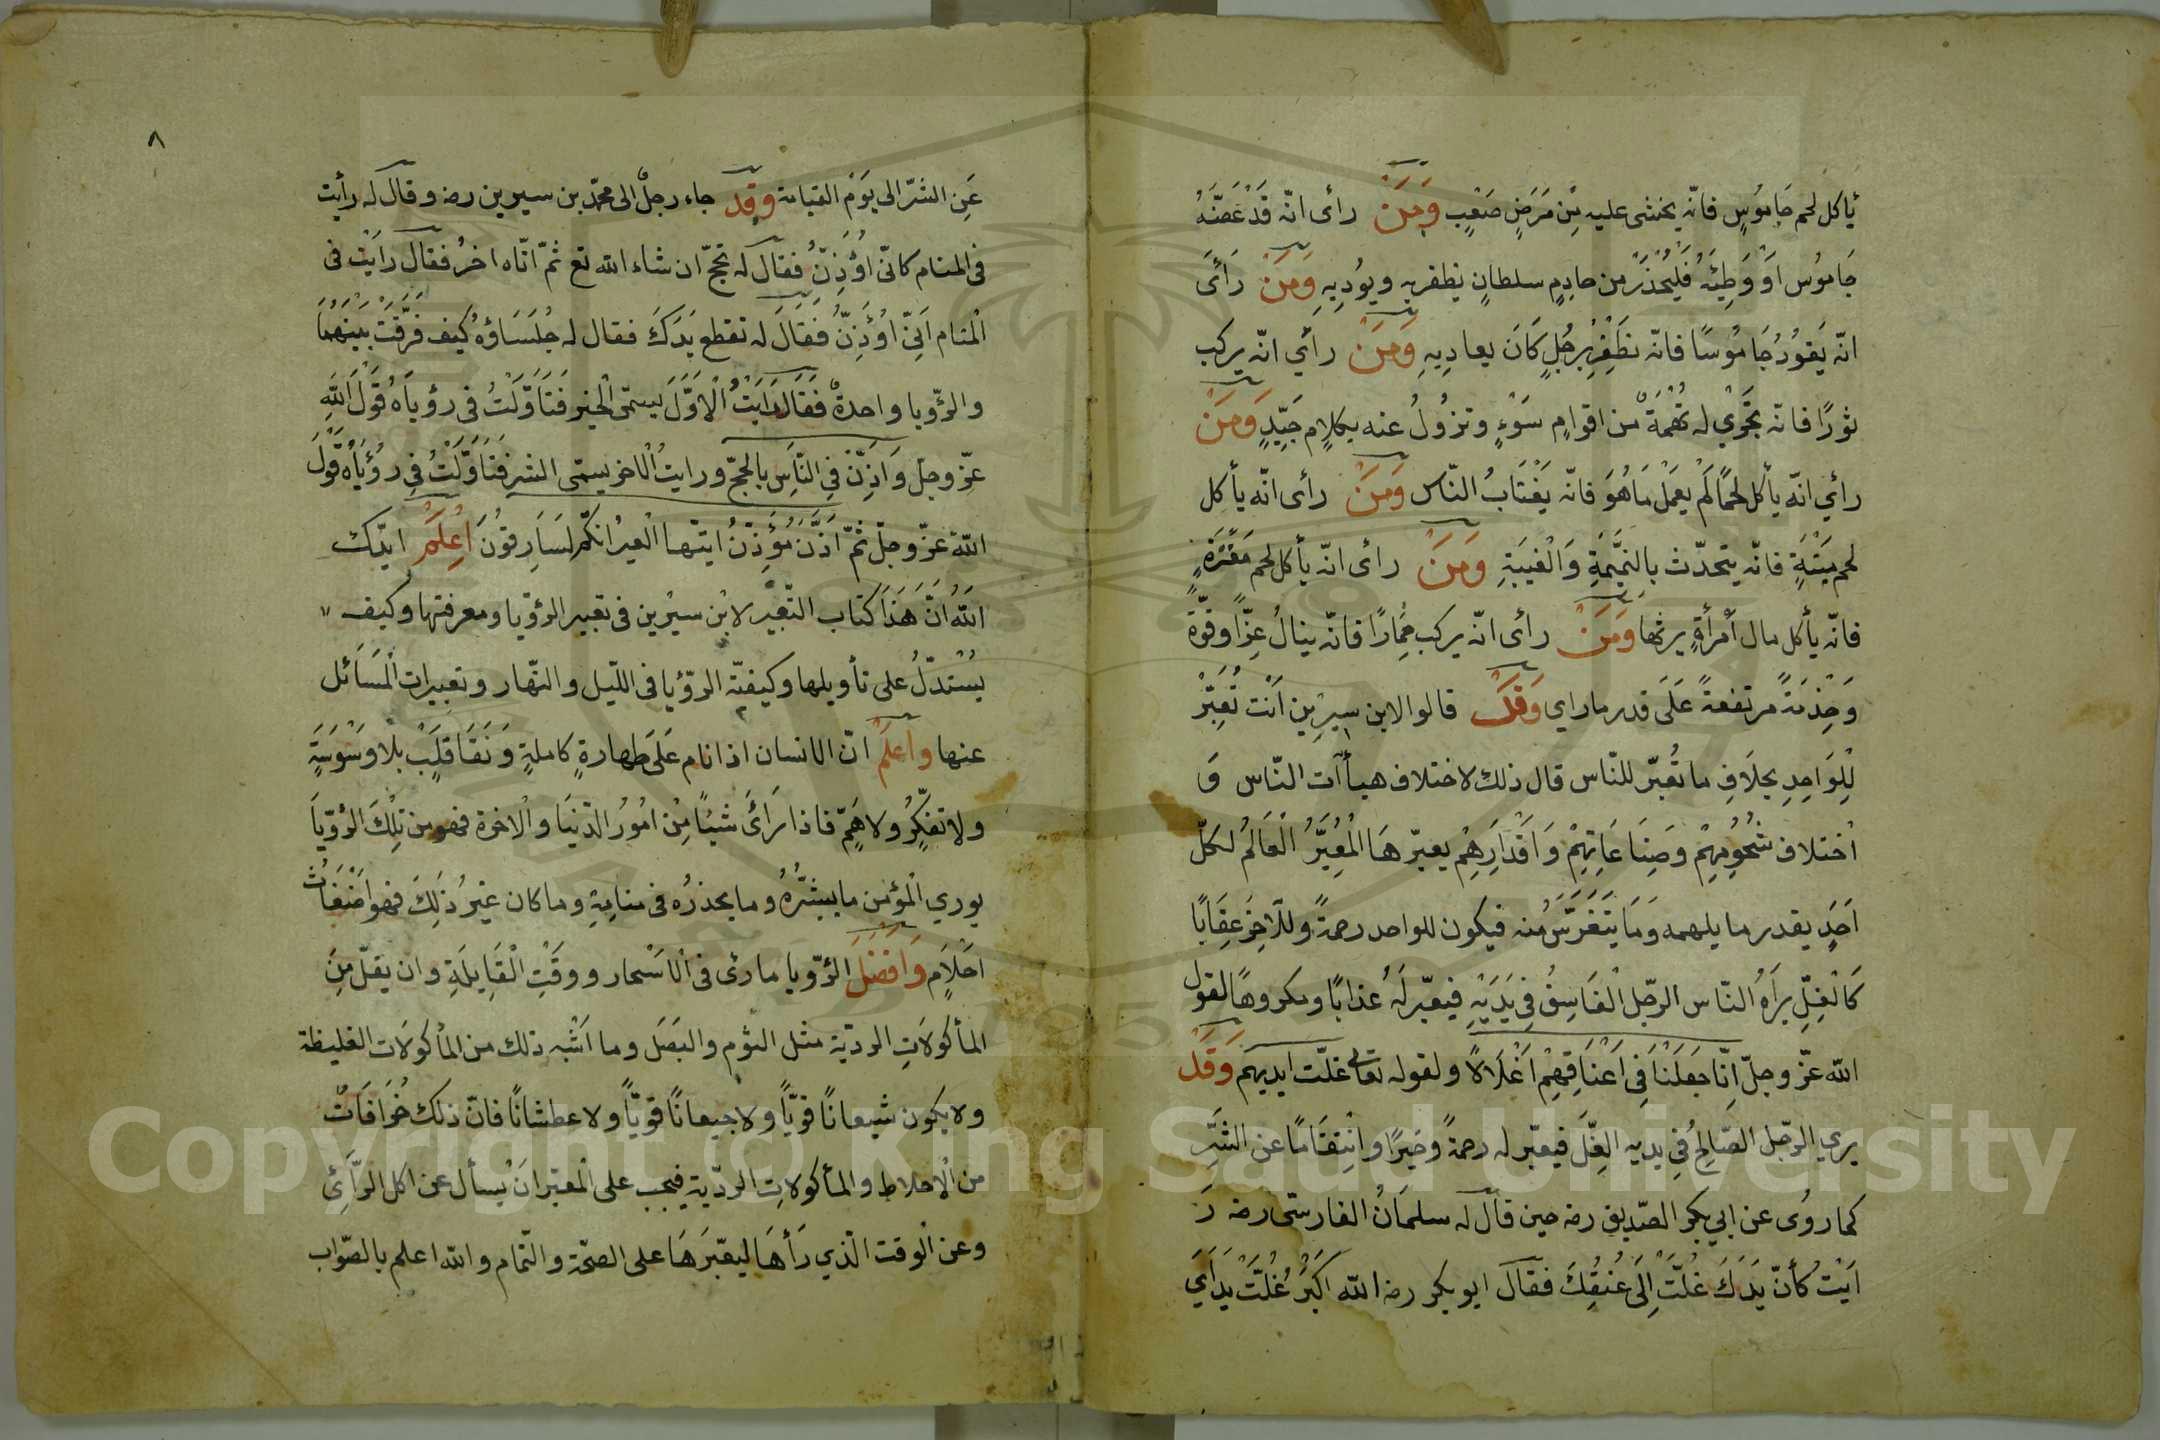 يأكل لحم جاموُسٍ فانّه يخشى عليه مِنْ مَرَضٍ صَعْبٍ وَمَنْ رأى انّه قَدْ عَضَّهُ
جَاموُس اَوْ وَطِئَهُ فَلْيَحْذَرْ من صادِمٍ سلطانٍ يظفر به ويوُدِيهِ وَمَنْ رَأَىَ
انّه يَقوُدُ جَاموُسًا فانّه يَظْفِرُ بِرَجُلٍ كَانَ يعادِيهِ وَمَنْ رأي انّه يركب
ثورًا فانّه تجَّوْي له تُهْمَةٌ من اقوامٍ سَوْءٍ وتزُولُ عنه بكلامٍ جَيِّدٍ وَمَنْ
رأي انّه يأكل لحمًا لَمْ يعمل مَا هُوَ فانّه يَغْتَابُ النّاس وَمَنْ رأى انّه يأكل
لحم مَيْتَةٍ فانّه يتحدّث بِالنَّمِيَّةِ وَالْغيبَةِ وَمَنْ رأى انّه يأكل لحم مَعْزَةٍ
فانّه يأكل مال اَمْرأةٍ يرثها وَمَنْ رأى انّه يركب حِمَارًا فانّه ينالُ عِزًّا وقوّةً
وَخِدْمَةً مرتفعةً عَلَى قدر ما راي وَقَدْ قالوا لابن سيرين اَنْتَ تُعَبِّرْ
لِلْوَاحِدِ بخِلَافِ ما تُعَبّر للنّاس قال ذلك لاختلاف هيأآت النّاس وَ
اْختلاف شُحُومِهِمْ وَصِنَاعَاتِهِمْ وَاَقْدَارِهِمْ يعبّرهَا الْمُعَبِّرُ الْعَالِمُ لكلّ
اَحَدٍ بقدر ما يلهمه وَمَا يَتَفَرَّسُ منه فيكون للواحد رحمةً وللآخِرَ عِقَابًا
كَالْغِلِّ يرَاَهُ النّاس الرجّل الْفَاسِقُ فِي يَدَيْهِ فيعبّر لَهُ عذابًا ومكروهًا لقول
الله عزّ وجلّ اِنَّا جَعَلْنَا فِي اَعْنَاقِهِمْ اَغْلَالًا ولقوله تعالى غلّت ايديهم وَقَدْ
يري الرجّل الصّالِحُ فِي يديه الغِلّ فيعبّر له رحمةً وخيرًا وانْتِقَامًا عن الشَّرِ
كما روُى عن ابي بكر الصّديق رضه حين قال له سلمَانُ الفارسّى رضه رَ
اَيْتُ كأنّ يَدَكَ غُلَّتْ اِلَى عُنُقِكَ فقال ابو بكر رضه الله اَكبَرُ غُلَّتْ يَدَاَيَ
عَنِ الشرّ الى يَوَمَ القيامة وقد جاء رجلٌ الى محمّد بن سيرين رضه وقال له رأيت
فى المنام كانّى اُؤَذِّنُ فقال له تحجّ ان شاء الله تع ثمّ اتّاه اخرُ فقال رأيْت فى
الْمنام اَنّى اُؤَذِّنُ فَقَالَ له تقطع يَدَكَ فقال له جُلَسَاؤهُ كيف فَرَّقْتَ بَيْنَهُمَا
والرّؤيا واحدةٌ فَقَال رَاَيَتُ الْاَوَّلَ يسمّى الخير فَتَاَوَّلْتُ فى رؤيَاهُ قَوْلَ اللهِ
عزّ وجلّ وَاَذِّنْ فِي النَّاسِ بالحجّ ورايتُ الْاخر يسمّى الشر فَتَاَوَّلْتُ فِي رؤيَاهُ قَوْلَ
الله عزّ وجلّ ثمّ اَذَّنَ مُؤَذِّنٌ ايتّها الْعيرُ انكّم لسَارِقوُنَ اِعْلَمْ ايّدك
اللهُ اَنَّ هَذَا كتاب التّعبير لابْن سيرين فى تعبير الرؤيا ومعرفتها وكيف
يُسْتَدلُّ على تأويلها وكيفيّة الرؤيا فى اللّيل والنّهار وتعبيرات الْمَسَائل
عنها واعلم انّ الانسان اذا نام عَلَى طهارةٍ كاملةٍ وَنَقَا قلبٍ بلا وَسْوَسَةٍ
ولا تفكّرٍ ولا هَمٍّ فاذا رَأَىَ شيئًا مِنْ امُورُ الدّنيَا والْاخرة فهو من تِلْكَ الرؤيَا
يوري الْمؤمن ما يبشّرُهُ وما يحذرُه فى منامِهِ وما كان غيرُ ذَلِكَ فهو اَضْغَاثُ
اَحْلَامٍ وَاَفضَلَ الرّؤيا ما رئى فى الْاَسْحار ووقْتِ الْقَايلَةِ وان يقلّ مِنَ
المأكولَاتِ الرديّة مثل الثوُّم والبَصَل وما اَشْبه ذلك من المأكولَات الغليظة
ولا يكون شيعانًا قويًّا ولا جيعانًا قويًّا ولا عطشانًا فانّ ذلك خُرَافَاتٌ
من الْاخلاط والمأكولاتِ الردّية فيجب على الْمعبّر انَ يُسأل عن اكل الرّائِي
وعن الْوقت الّذي رَأهَا ليعَبّرَهَا على الصحّة والتّمام والله اعلم بالصّواب
٨
Copyright © King Saud University